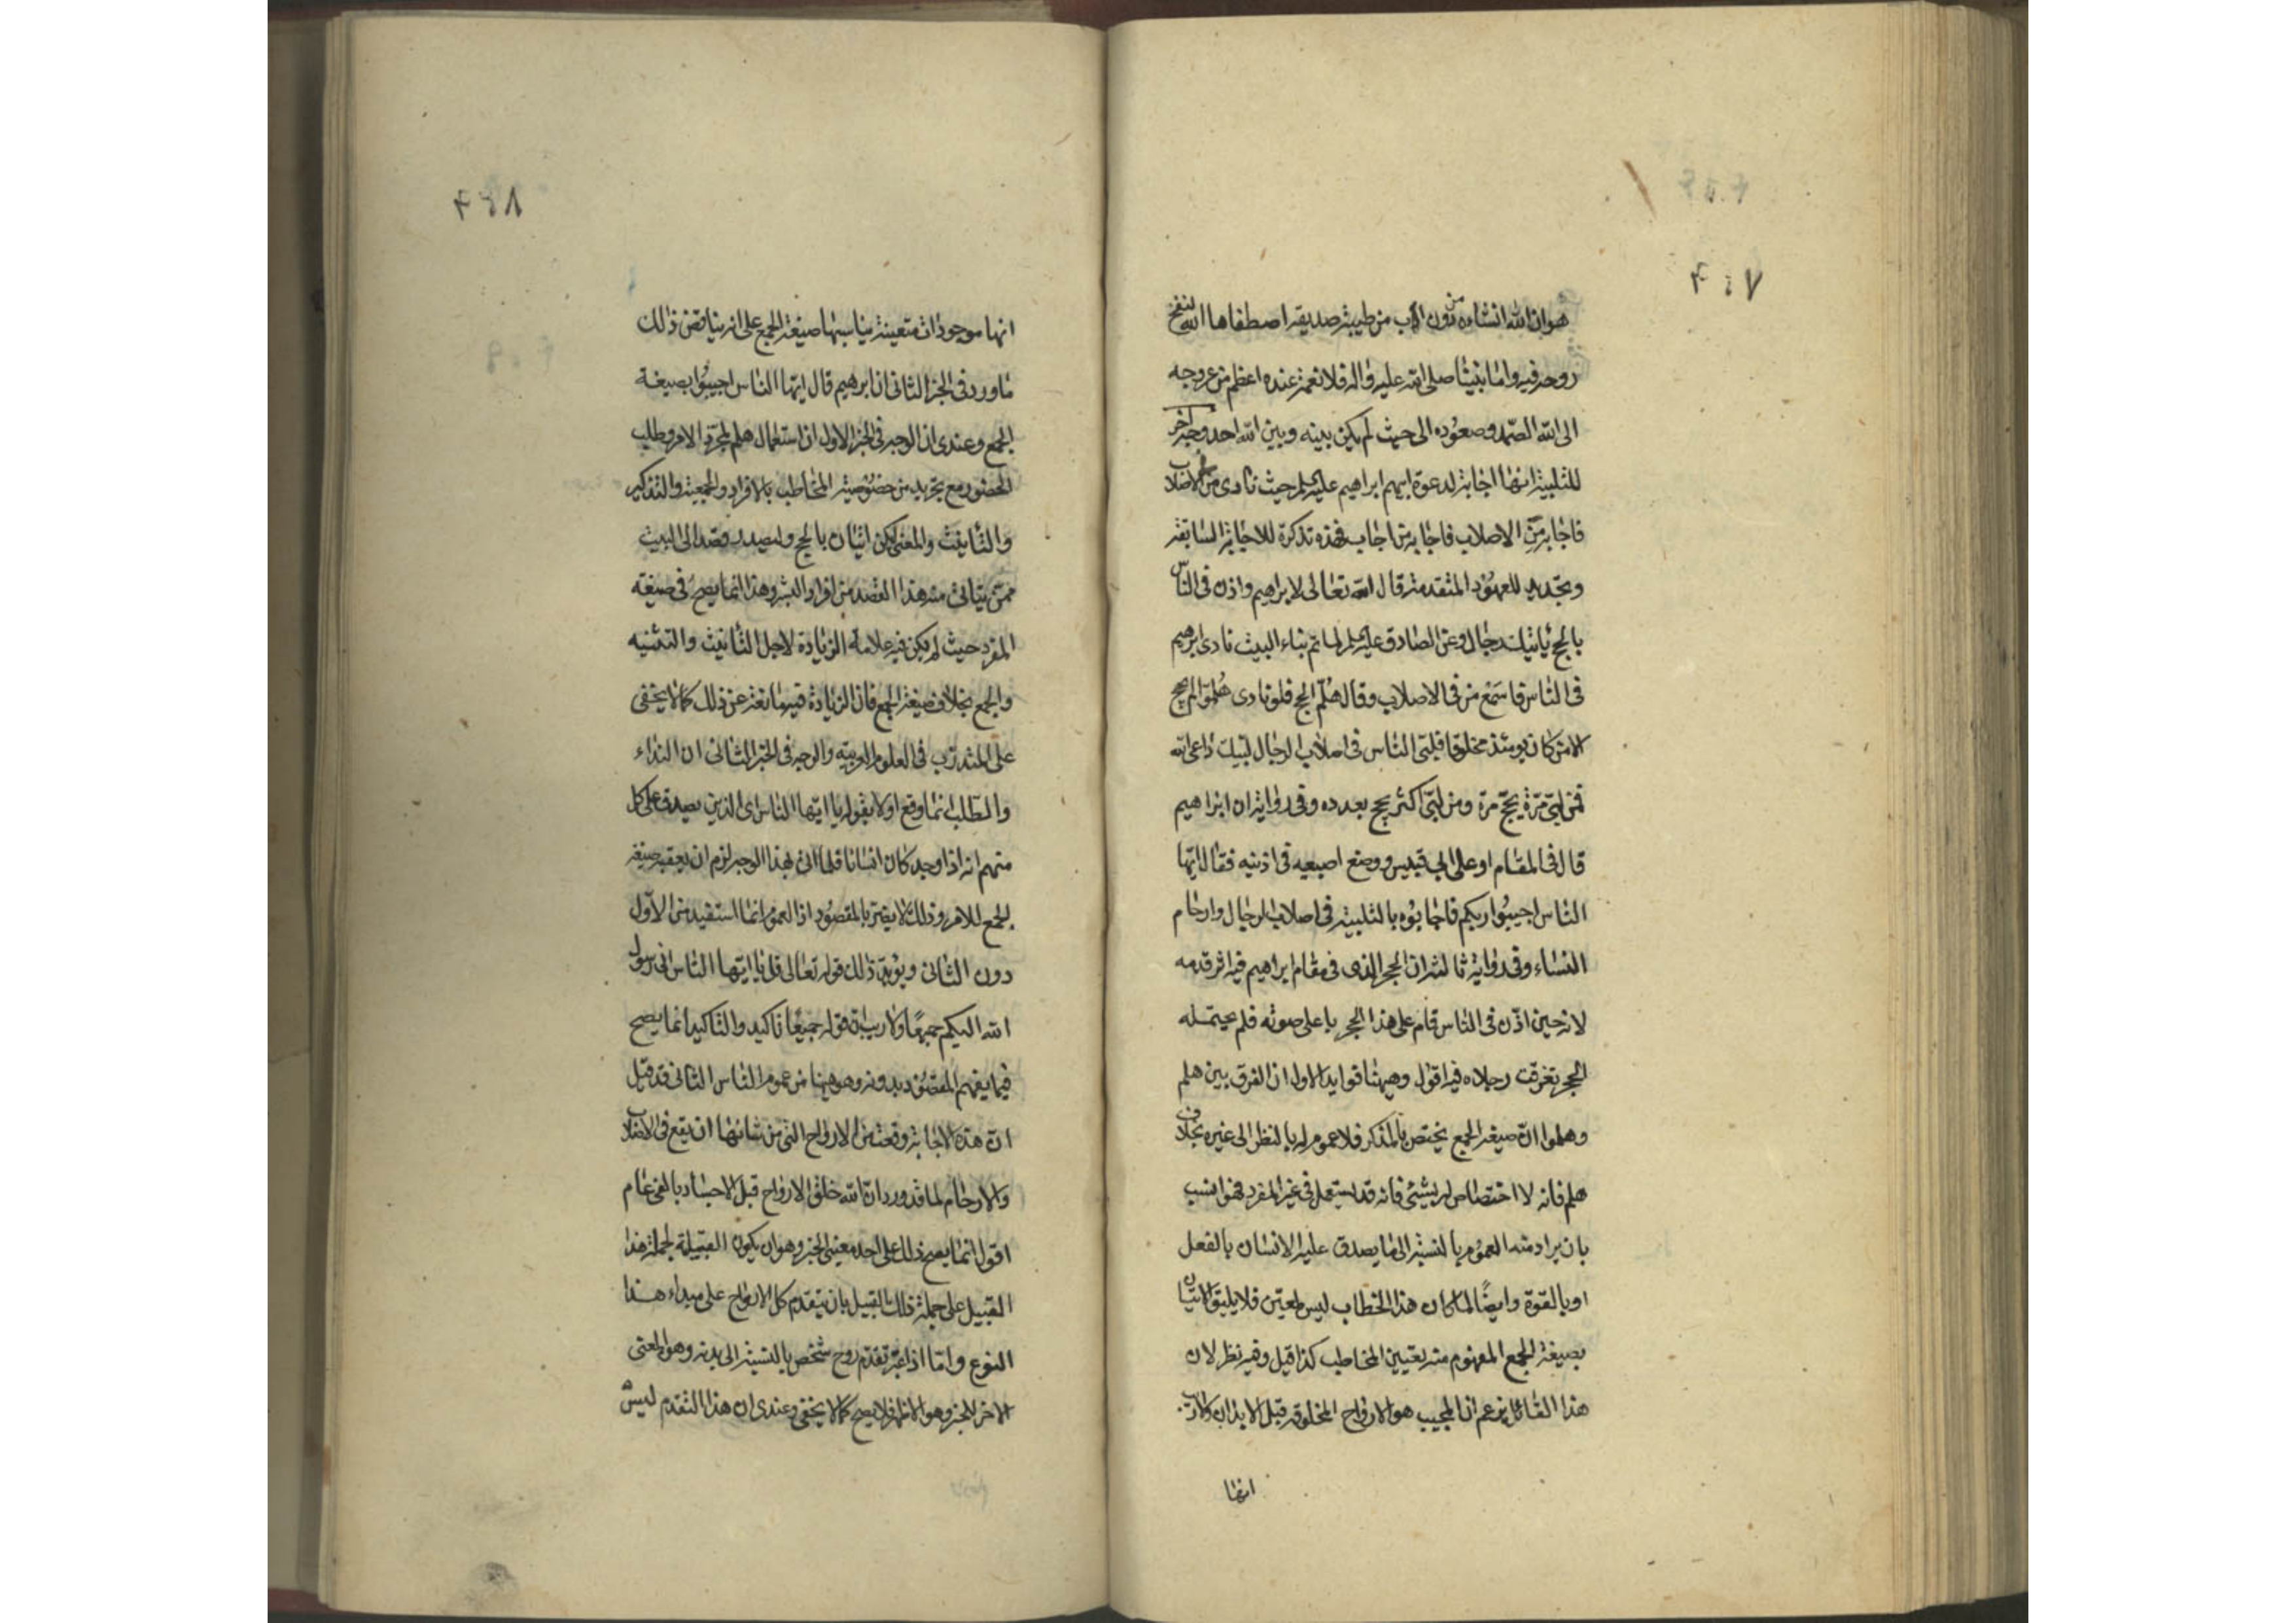 هو ان الله انشاءه من دون اب من طيبة صديقة اصطفاها الله لنفخ
روحه فيه واما نبينا صلى الله عليه واله فلا نعمة عنده اعظم من عروجه
الى الله الصمد وصعوده الى حيث لم يكن بينه وبين الله احد وجه اخر
للتلبية انها اجابة لدعوة ابيهم ابراهيم عليه السلم حيث نادى من في الاصلاب
فاجابه من الاصلاب فاجابه من اجاب فهذه تذكرة للاجابة السابقة
وتجديد للعهود المتقدمة قال الله تعالى لابراهيم واذن في الناس
بالحج يأتيك رجال وعن الصادق عليه السلم لما تم بناء البيت نادى ابرهيم
في الناس فاسمع من في الاصلاب وقال هلم الحج فلو نادى هلموا لم يحج
الا من كان يومئذ مخلوقا فلبى الناس في اصلاب الرجال لبيك داعى الله
فمن لبى مرة يحج مرة ومن لبى اكثر يحج بعدده وفى رواية ان ابراهيم
قال في المقام او على ابى قبيس ووضع اصبعيه في اذنيه فقال ايها
الناس اجيبوا ربكم فاجابوه بالتلبية في اصلاب الرجال وارحام
النساء وفى رواية ثالثة ان الحجر الذى في مقام ابراهيم فيه اثر قدمه
لانه حين اذن في الناس قام على هذا الحجر باعلى صوته فلم يحتمله
الحجر فغرقت رجلاه فيه اقول وهيهنا فوايد الاول ان الفرق بين هلم
وهلموا ان صيغة الجمع يختص بالمذكر فلا عموم له بالنظر الى غيره بخلاف
هلم فانه لا اختصاص له بشئ فانه قد يستعمل في غير المفرد فهو انسب
بان يراد منه العموم بالنسبة الى ما يصدق عليه الانسان بالفعل
او بالقوة وايضًا لما كان هذا الخطاب ليس لمعين فلا يليق الاتيان
بصيغة الجمع المفهوم منه تعيين المخاطب كذا قيل وفيه نظر لان
هذا القائل يزعم ان المجيب هو الارواح المخلوقة قبل الابدان ولا ريب
انها
انها موجودات متعينة يناسبها صيغة الجمع على انه يناقض ذلك
ما ورد في الخبر الثانى ان ابرهيم قال ايها الناس اجيبوا بصيغة
الجمع وعندى ان الوجه في الخبر الاول ان استعمال هلم لمجرد الامر وطلب
الحضور مع تجريده من خصوصية المخاطب بالافراد والجمعية والتذكير
والتأنيث والمعنى ليكن اتيان بالحج وليصدر قصد الى البيت
ممن يتأتى منه هذا القصد من افراد البشر وهذا انما يصح في صيغة
المفرد حيث لم يكن فيه علامة الزيادة لاجل التأنيث والتثنيه
والجمع بخلاف صيغة الجمع فان الزيادة فيها مانعة عن ذلك كما لا يخفى
على المتدرب في العلوم العربيه والوجه في الخبر الثانى ان النداء
والطلب انما وقع اولا بقوله يا ايها الناس اى الذين يصدق على كل
منهم انه اذا وجد كان انسانا فلما اتى بهذا الوجه لزم ان يعقبه صيغة
الجمع للامر وذلك لا يضر بالمقصود اذ العموم انما استفيد من الاول
دون الثانى ويؤيد ذلك قوله تعالى قل يا ايها الناس انى رسول
الله اليكم جميعًا ولا ريب ان قوله جميعًا تاكيد والتاكيد انما يصح
فيما يفهم المقصود بدونه وهو هيهنا من عموم الناس الثانى قد قيل
ان هذه الاجابة وقعت من الارواح التى من شانها ان يقع في الاصلاب
والارحام لما قد ورد ان الله خلق الارواح قبل الاجساد بالفى عام
اقول انما يصح ذلك على احد معنيى الخبر وهو ان يكون القبيلة لجملة هذا
القبيل على جملة ذلك القبيل بان يتقدم كل الارواح على مبداء هذا
النوع واما اذا اعتبر تقدم روح شخص بالنسبة الى بدنه وهو المعنى
الاخر للخبر وهو الاظهر فلا يصح كما لا يخفى وعندى ان هذا التقدم ليس